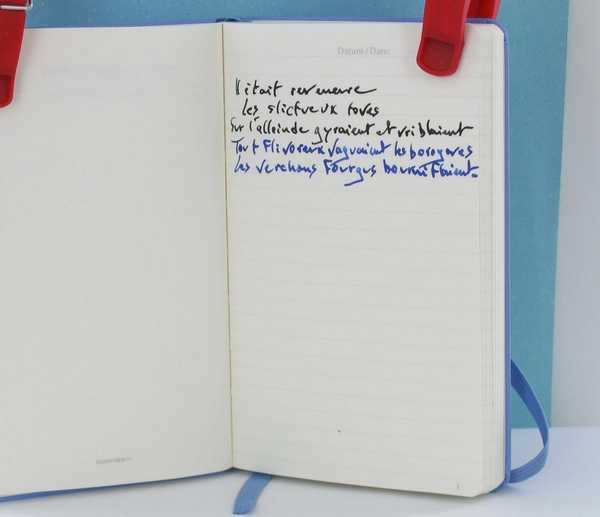 Datum / Date:
Il était reveneure
les slictueux toves
Sur l'alloinde gyraient et vriblaient
Tout Flivoreux vaguaient les borogoves
Les verchons Fourgus bourniflaient.
1